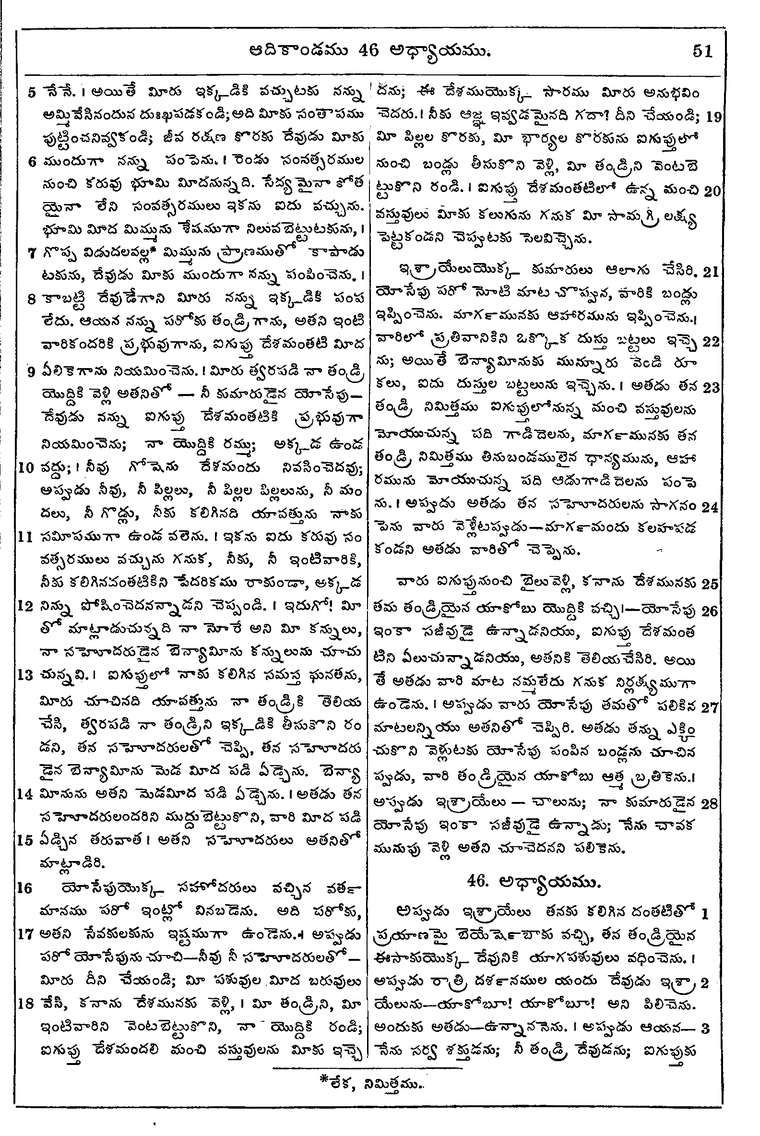 ఆదికాండము 46 అధ్యాయము. 51
5 నేనే. । అయితే మీరు ఇక్కడికి వచ్చుటకు నన్ను
అమ్మివేసినందున దుఃఖపడకండి; అది మీకు సంతాపము
పుట్టించనివ్వకండి; జీవ రక్షణ కొరకు దేవుడు మీకు
6 ముందుగా నన్ను పంపెను. । రెండు సంవత్సరముల
నుంచి కరువు భూమి మీదనున్నది. సేద్యమైనా కోత
యైనా లేని సంవత్సరములు ఇకను ఐదు వచ్చును.
భూమి మీద మిమ్మును శేషముగా నిలువబెట్టుటకును, ।
7 గొప్ప విడుదలవల్ల* మిమ్మును ప్రాణముతో కాపాడు
టకును, దేవుడు మీకు ముందుగా నన్ను పంపించెను. ।
8 కాబట్టి దేవుడేగాని మీరు నన్ను ఇక్కడికి పంప
లేదు. ఆయన నన్ను పరోకు తండ్రిగాను, అతని ఇంటి
వారికందరికి ప్రభువుగాను, ఐగుప్తు దేశమంతటి మీద
9 ఏలికెగాను నియమించెను. । మీరు త్వరపడి నా తండ్రి
యొద్దికి వెళ్లి అతనితో — నీ కుమారుడైన యోసేపు—
దేవుడు నన్ను ఐగుప్తు దేశమంతటికి ప్రభువుగా
నియమించెను; నా యొద్దికి రమ్ము; అక్కడ ఉండ
10 వద్దు; । నీవు గోషెను దేశమందు నివసించెదవు;
అప్పుడు నీవు, నీ పిల్లలు, నీ పిల్లల పిల్లలును, నీ మం
దలు, నీ గొడ్లు, నీకు కలిగినది యావత్తును నాకు
11 సమీపముగా ఉండ వలెను. । ఇకను ఐదు కరువు సం
వత్సరములు వచ్చును గనుక, నీకు, నీ ఇంటివారికి,
నీకు కలిగినదంతటికిని పేదరికము రాకుండా, అక్కడ
12 నిన్ను పోషించెదనన్నాడని చెప్పండి. । ఇదుగో! మీ
తో మాట్లాడుచున్నది నా నోరే అని మీ కన్నులు,
నా సహోదరుడైన బెన్యామీను కన్నులును చూచు
13 చున్నవి. । ఐగుప్తులో నాకు కలిగిన సమస్త ఘనతను,
మీరు చూచినది యావత్తును నా తండ్రికి తెలియ
చేసి, త్వరపడి నా తండ్రిని ఇక్కడికి తీసుకొని రం
డని, తన సహోదరులతో చెప్పి, తన సహోదరు
డైన బెన్యామీను మెడ మీద పడి ఏడ్చెను. బెన్యా
14 మీనును అతని మెడమీద పడి ఏడ్చెను. । అతడు తన
సహోదరులందరిని ముద్దుబెట్టుకొని, వారి మీద పడి
15 ఏడ్చిన తరువాత । అతని సహోదరులు అతనితో
మాట్లాడిరి.
16 యోసేపుయొక్క సహోదరులు వచ్చిన వర్త
మానము పరో ఇంట్లో వినబడెను. అది పరోకు,
17 అతని సేవకులకును ఇష్టముగా ఉండెను. । అప్పుడు
పరో యోసేపును చూచి—నీవు నీ సహోదరులతో—
మీరు దీని చేయండి; మీ పశువుల మీద బరువులు
18 వేసి, కనాను దేశమునకు వెళ్లి, । మీ తండ్రిని, మీ
ఇంటివారిని వెంటబెట్టుకొని, నా యొద్దికి రండి;
ఐగుప్తు దేశమందలి మంచి వస్తువులను మీకు ఇచ్చె
దను; ఈ దేశముయొక్క సారము మీరు అనుభవిం
చెదరు. । నీకు ఆజ్ఞ ఇవ్వడమైనది గదా? దీని చేయండి; 19
మీ పిల్లల కొరకు, మీ భార్యల కొరకును ఐగుప్తులో
నుంచి బండ్లు తీసుకొని వెళ్లి, మీ తండ్రిని వెంటబె
ట్టుకొని రండి. । ఐగుప్తు దేశమంతటిలో ఉన్న మంచి 20
వస్తువులు మీకు కలుగును గనుక మీ సామగ్రి లక్ష్య
పెట్టకండని చెప్పుటకు సెలవిచ్చెను.
ఇశ్రాయేలుయొక్క కుమారులు ఆలాగు చేసిరి. 21
యోసేపు పరో నోటి మాట చొప్పున, వారికి బండ్లు
ఇప్పించెను. మార్గమునకు ఆహారమును ఇప్పించెను. ।
వారిలో ప్రతివానికిని ఒక్కొక దుస్తు బట్టలు ఇచ్చె 22
ను; అయితే బెన్యామీనుకు మున్నూరు వెండి రూ
కలు, ఐదు దుస్తుల బట్టలును ఇచ్చెను. । అతడు తన 23
తండ్రి నిమిత్తము ఐగుప్తులోనున్న మంచి వస్తువులను
మోయుచున్న పది గాడిదెలను, మార్గమునకు తన
తండ్రి నిమిత్తము తినుబండములైన ధాన్యమును, ఆహా
రమును మోయుచున్న పది ఆడుగాడిదెలను పంపె
ను. । అప్పుడు అతడు తన సహోదరులను సాగనం 24
పెను వారు వెళ్లేటప్పుడు—మార్గమందు కలహపడ
కండని అతడు వారితో చెప్పెను.
వారు ఐగుప్తునుంచి బైలువెళ్లి, కనాను దేశమునకు 25
తమ తండ్రియైన యాకోబు యొద్దికి వచ్చి।—యోసేపు 26
ఇంకా సజీవుడై ఉన్నాడనియు, ఐగుప్తు దేశమంత
టిని ఏలుచున్నాడనియు, అతనికి తెలియచేసిరి. అయి
తే అతడు వారి మాట నమ్మలేదు గనుక నిర్లక్ష్యముగా
ఉండెను. । అప్పుడు వారు యోసేపు తమతో పలికిన 27
మాటలన్నియు అతనితో చెప్పిరి. అతడు తన్ను ఎక్కిం
చుకొని వెళ్లుటకు యోసేపు పంపిన బండ్లను చూచిన
ప్పుడు, వారి తండ్రియైన యాకోబు ఆత్మ బ్రతికెను. ।
అప్పుడు ఇశ్రాయేలు — చాలును; నా కుమారుడైన 28
యోసేపు ఇంకా సజీవుడై ఉన్నాడు; నేను చావక
మునుపు వెళ్లి అతని చూచెదనని పలికెను.
46. అధ్యాయము.
అప్పుడు ఇశ్రాయేలు తనకు కలిగిన దంతటితో 1
ప్రయాణమై బెయేర్షెబాకు వచ్చి, తన తండ్రియైన
ఈసాకుయొక్క దేవునికి యాగపశువులు వధించెను. ।
అప్పుడు రాత్రి దర్శనముల యందు దేవుడు ఇశ్రా 2
యేలును—యాకోబూ! యాకోబూ! అని పిలిచెను.
అందుకు అతడు—ఉన్నాననెను. । అప్పుడు ఆయన— 3
నేను సర్వ శక్తుడను; నీ తండ్రి దేవుడను; ఐగుప్తుకు
*లేక, నిమిత్తము.